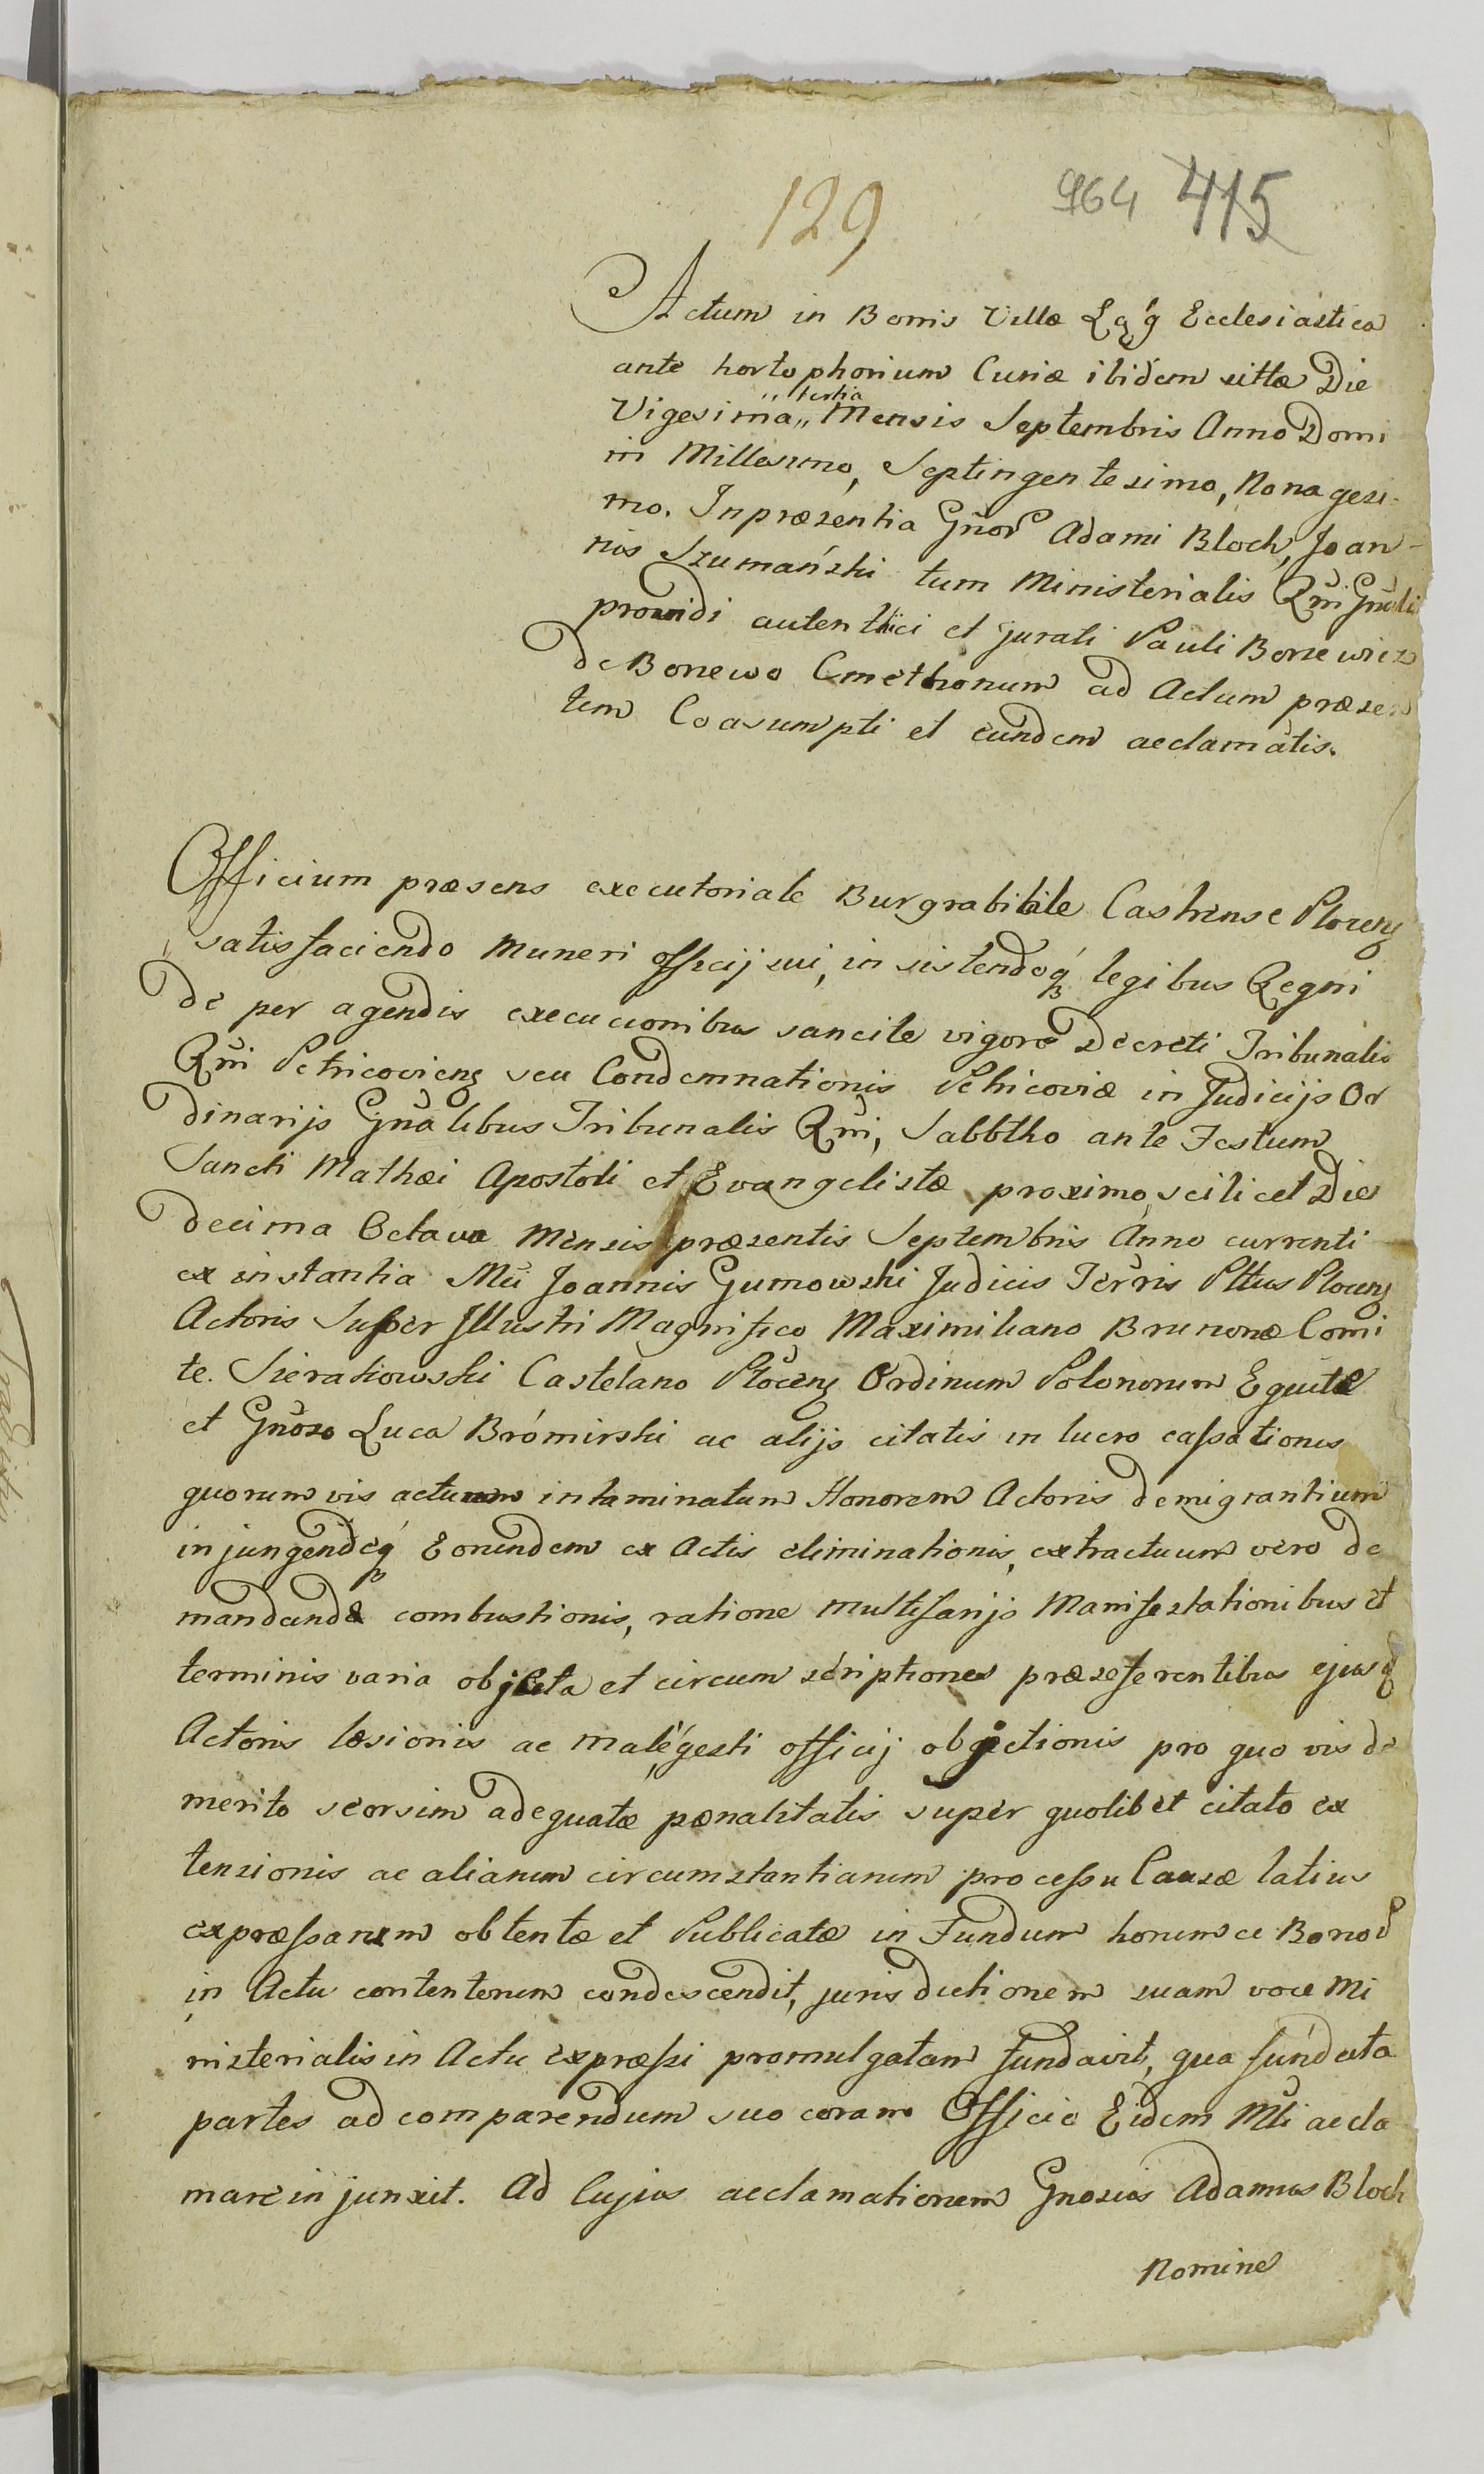 129 964 415
Actum in Bonis Villæ Łąg Ecclesiastica
ante hortophorium Curiæ ibidem sittæ Die
tertia
Vigesima,, Mensis Septembris Anno Domi
ni Millesimo, Septingentesimo, Nonagesi-
mo. Inpræsentia Gnor Adami Bloch, Joan-
nis Szumański tum Ministerialis Rni Gnalis
providi autentici et jurati Pauli Bonewicz
de Bonewo Cmethonum ad Actum præsen
tem Coasumpti et eundem acclamatis.
Officium præsens executoriale Burgrabiale Castrense Plocens
satisfaciendo Muneri officij sui, in sistendoq legibus Regni
de per agendis execucionibus sancite vigore Decreti Tribunalis
Rni Petricoviens seu Condemnationis Petricoviæ in Judicijs Or
dinarijs Gnalibus Tribunalis Rni, Sabbtho ante Festum
Sancti Mathæi Apostoli et Evangelistæ proximo, scilicet Die
decima Octava Mensis præsentis Septembris Anno currenti
ex instantia Mci Joannis Gumowski Judicis Terris Plttus Plocens
Actoris Super Illustri Magnifico Maximiliano Brunone Comi
te. Sierakowski Castelano Płocens Ordinum Polonorum Equite
et Gnoso Luca Brómirski ac alijs citatis in lucro caſsationis
quorum vis actuum intaminatum Honorem Actoris demigrantium
injungendeq Eorundem ex Actis eliminationis, extractuum vero de
mandandæ combustionis, ratione multifarijs Manifestationibus et
terminis varia objecta et circum scriptiones præseferentibus ejusq
Actoris læsionis ac malegesti officij objectionis pro quo vis de
merito seorsim adequatæ pænalitatis super quolibet citato ex
tensionis ac aliarum circumstantiarum proceſsu Causæ latius
expræſsarum obtentæ et Publicatæ in Fundum horum ce Bonor
in Actu contentorum condescendit, juris dictionem suam voce Mi
nisterialis in Actu expræſsi promulgatam fundavit, qua fundata
partes ad comparendum suo coram Officio Eidem Mli accla
mare in junxit. Ad Cujus acclamationem Gnosus Adamus Bloch
Nomine